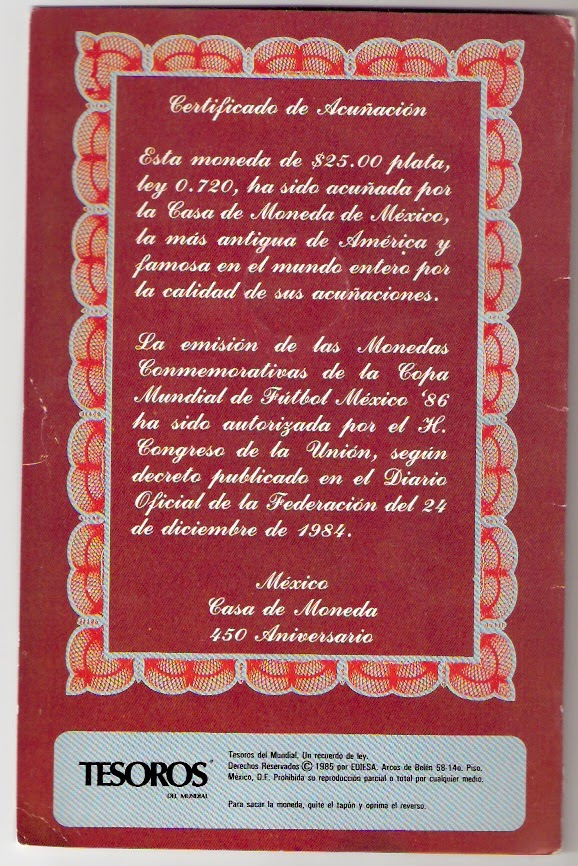 Certificado de Acuñación
Esta moneda de $25.00 plata,
ley 0.720, ha sido acuñada por
la Casa de Moneda de México,
la más antigua de América y
famosa en el mundo entero por
la calidad de sus acuñaciones.
La emisión de las Monedas
Conmemorativas de la Copa
Mundial de Fútbol México '86
ha sido autorizada por el H.
Congreso de la Unión, según
decreto publicado en el Diario
Oficial de la Federación del 24
de diciembre de 1984.
México
Casa de Moneda
450 Aniversario
TESOROS®
DEL MUNDIAL
Tesoros del Mundial. Un recuerdo de ley.
Derechos Reservados © 1985 por EDIESA. Arcos de Belén 58-14o. Piso.
México, D.F. Prohibida su reproducción parcial o total por cualquier medio.
Para sacar la moneda, quite el tapón y oprima el reverso.